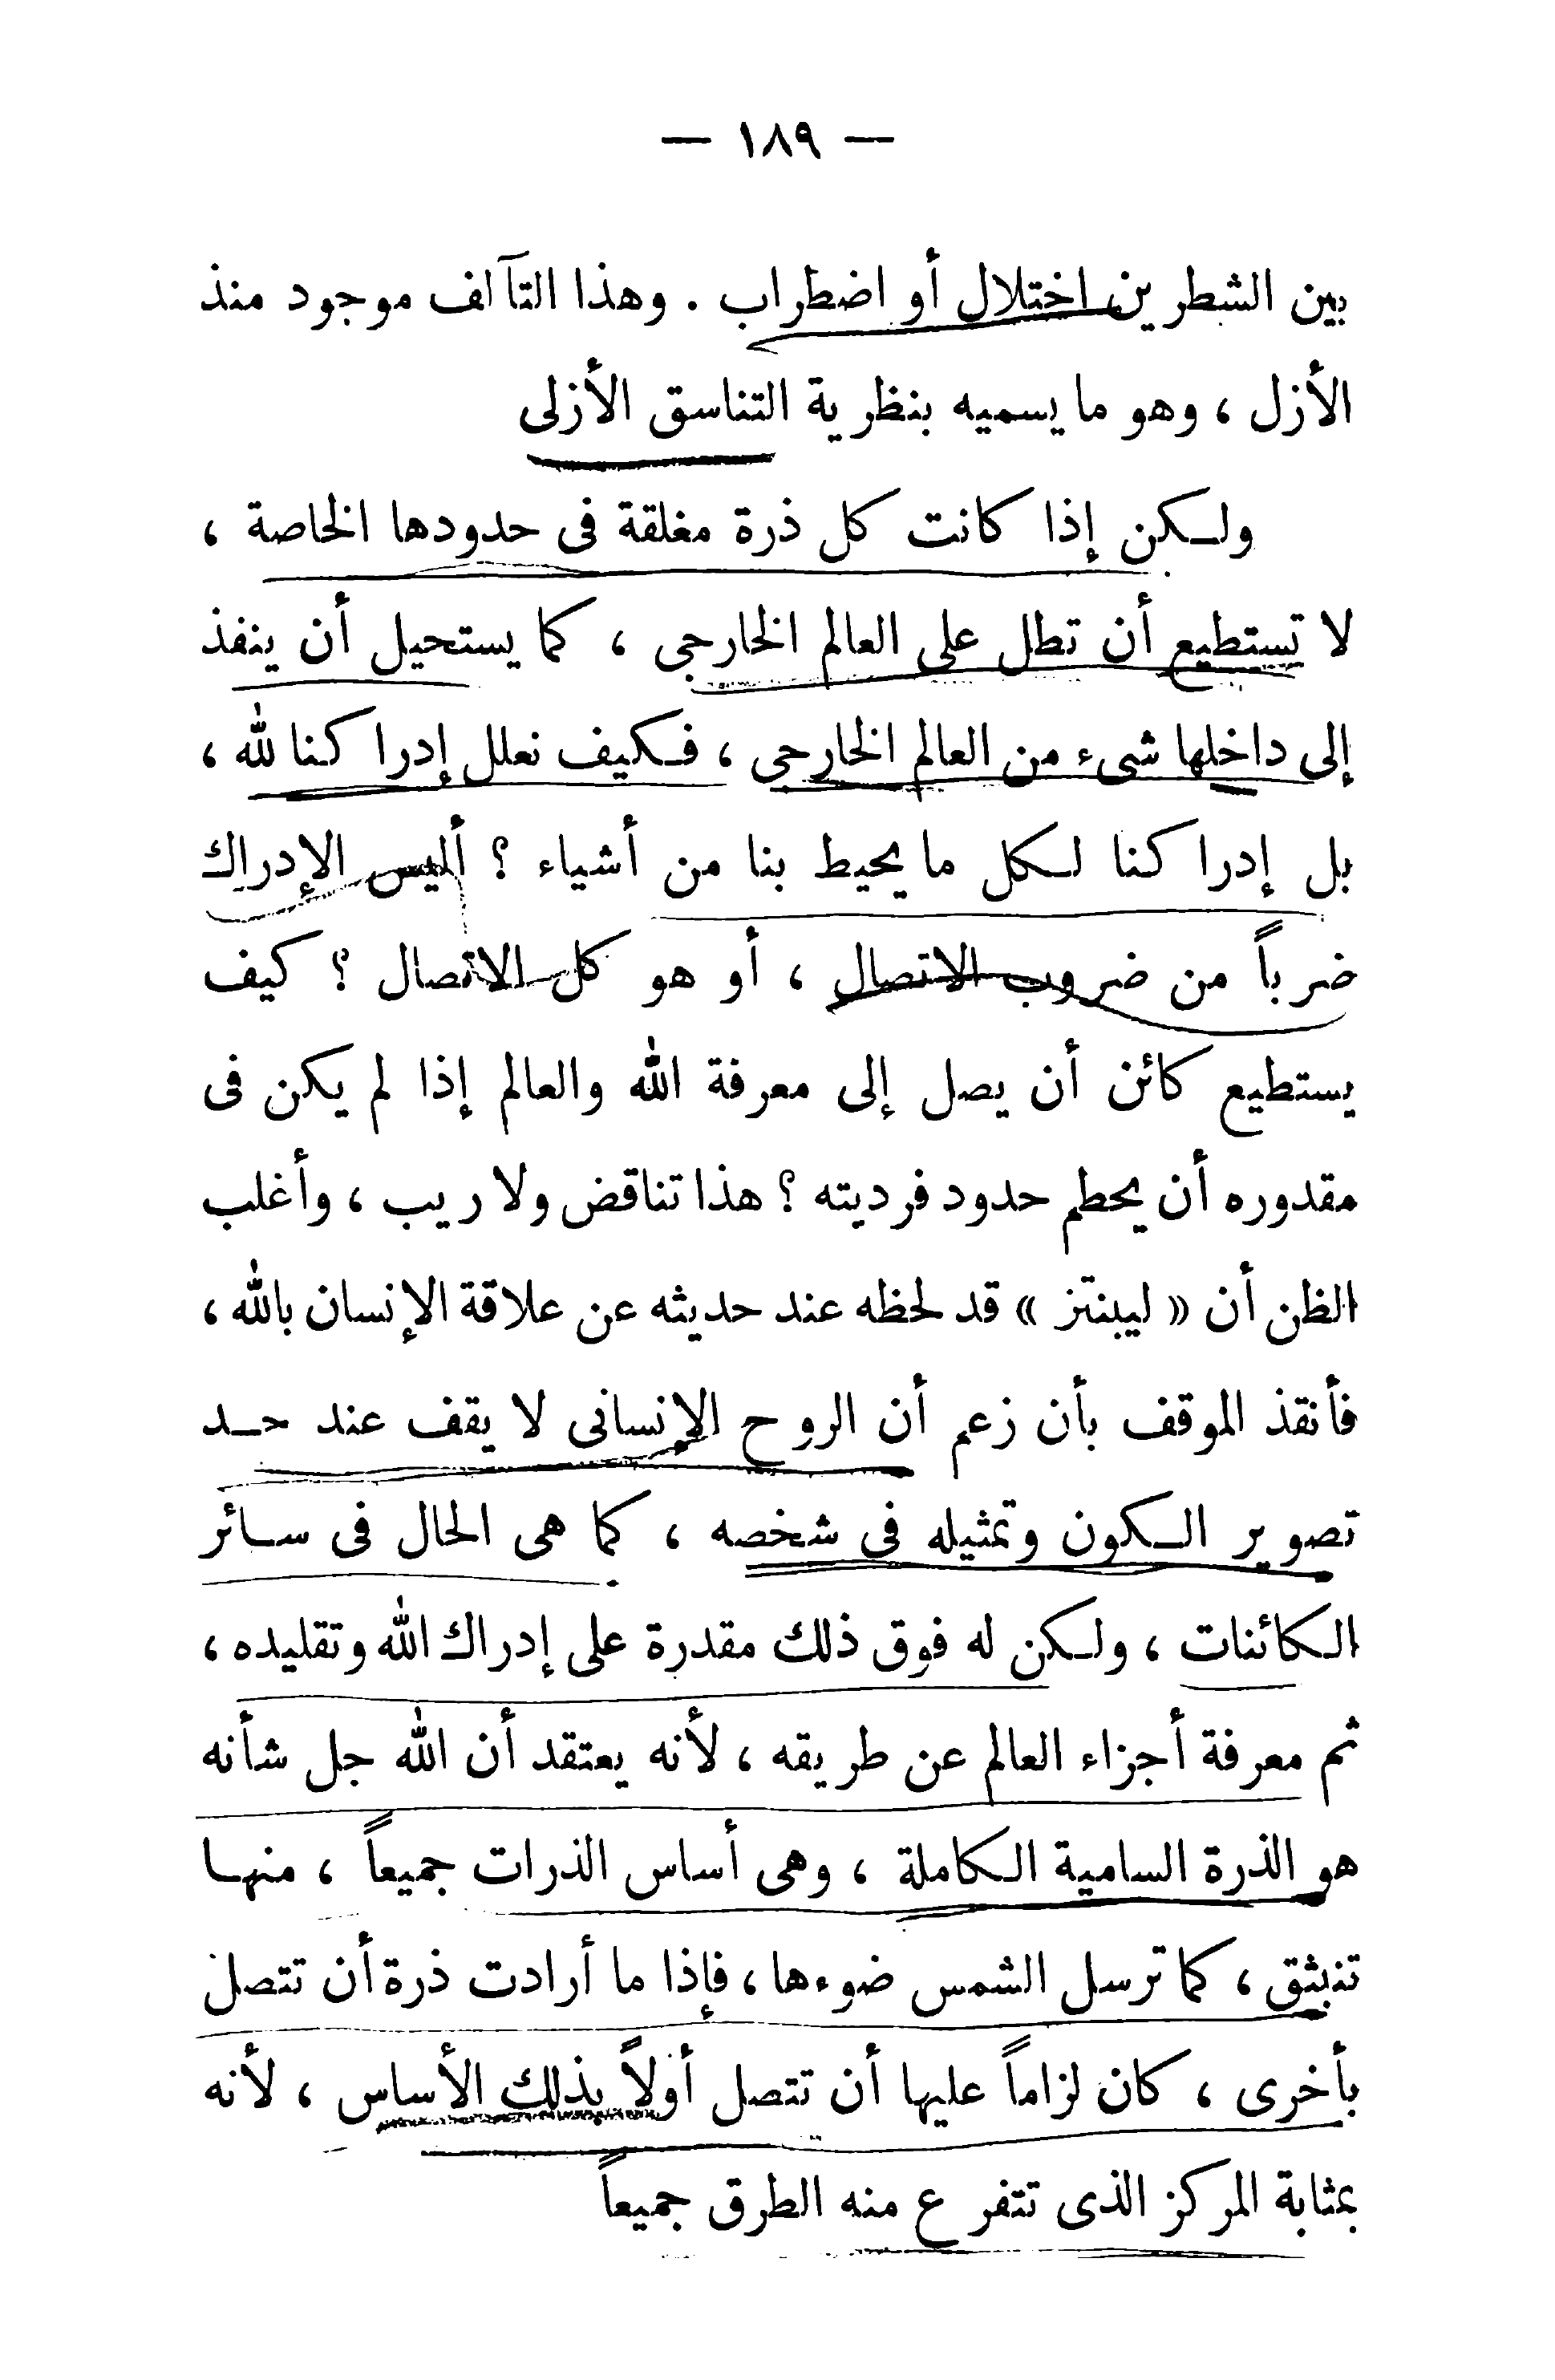 — ١٨٩ —
بين الشطرين اختلال أو اضطراب . وهذا التآلف موجود منذ
الأزل ، وهو ما يسميه بنظرية التناسق الأزلى
ولكن إذا كانت كل ذرة مغلقة فى حدودها الخاصة ،
لا تستطيع أن تطل على العالم الخارجى ، كما يستحيل أن ينفذ
إلى داخلها شىء من العالم الخارجى ، فكيف نعلل إدراكنا لله ،
بل إدراكنا لكل ما يحيط بنا من أشياء ؟ أليس الإدراك
ضرباً من ضروب الاتصال ، أو هو كل الاتصال ؟ كيف
يستطيع كائن أن يصل إلى معرفة الله والعالم إذا لم يكن فى
مقدوره أن يحطم حدود فرديته ؟ هذا تناقض ولا ريب ، وأغلب
الظن أن « ليبنتز » قد لحظه عند حديثه عن علاقة الإنسان بالله ،
فأنقذ الموقف بأن زعم أن الروح الإنسانى لا يقف عند حد
تصوير الكون وتمثيله فى شخصه ، كما هى الحال فى سائر
الكائنات ، ولكن له فوق ذلك مقدرة على إدراك الله وتقليده ،
ثم معرفة أجزاء العالم عن طريقه ، لأنه يعتقد أن الله جل شأنه
هو الذرة السامية الكاملة ، وهى أساس الذرات جميعاً ، منها
تنبثق ، كما ترسل الشمس ضوءها ، فإذا ما أرادت ذرة أن تتصل
بأخرى ، كان لزاماً عليها أن تتصل أولاً بذلك الأساس ، لأنه
بمثابة المركز الذى تتفرع منه الطرق جميعاً